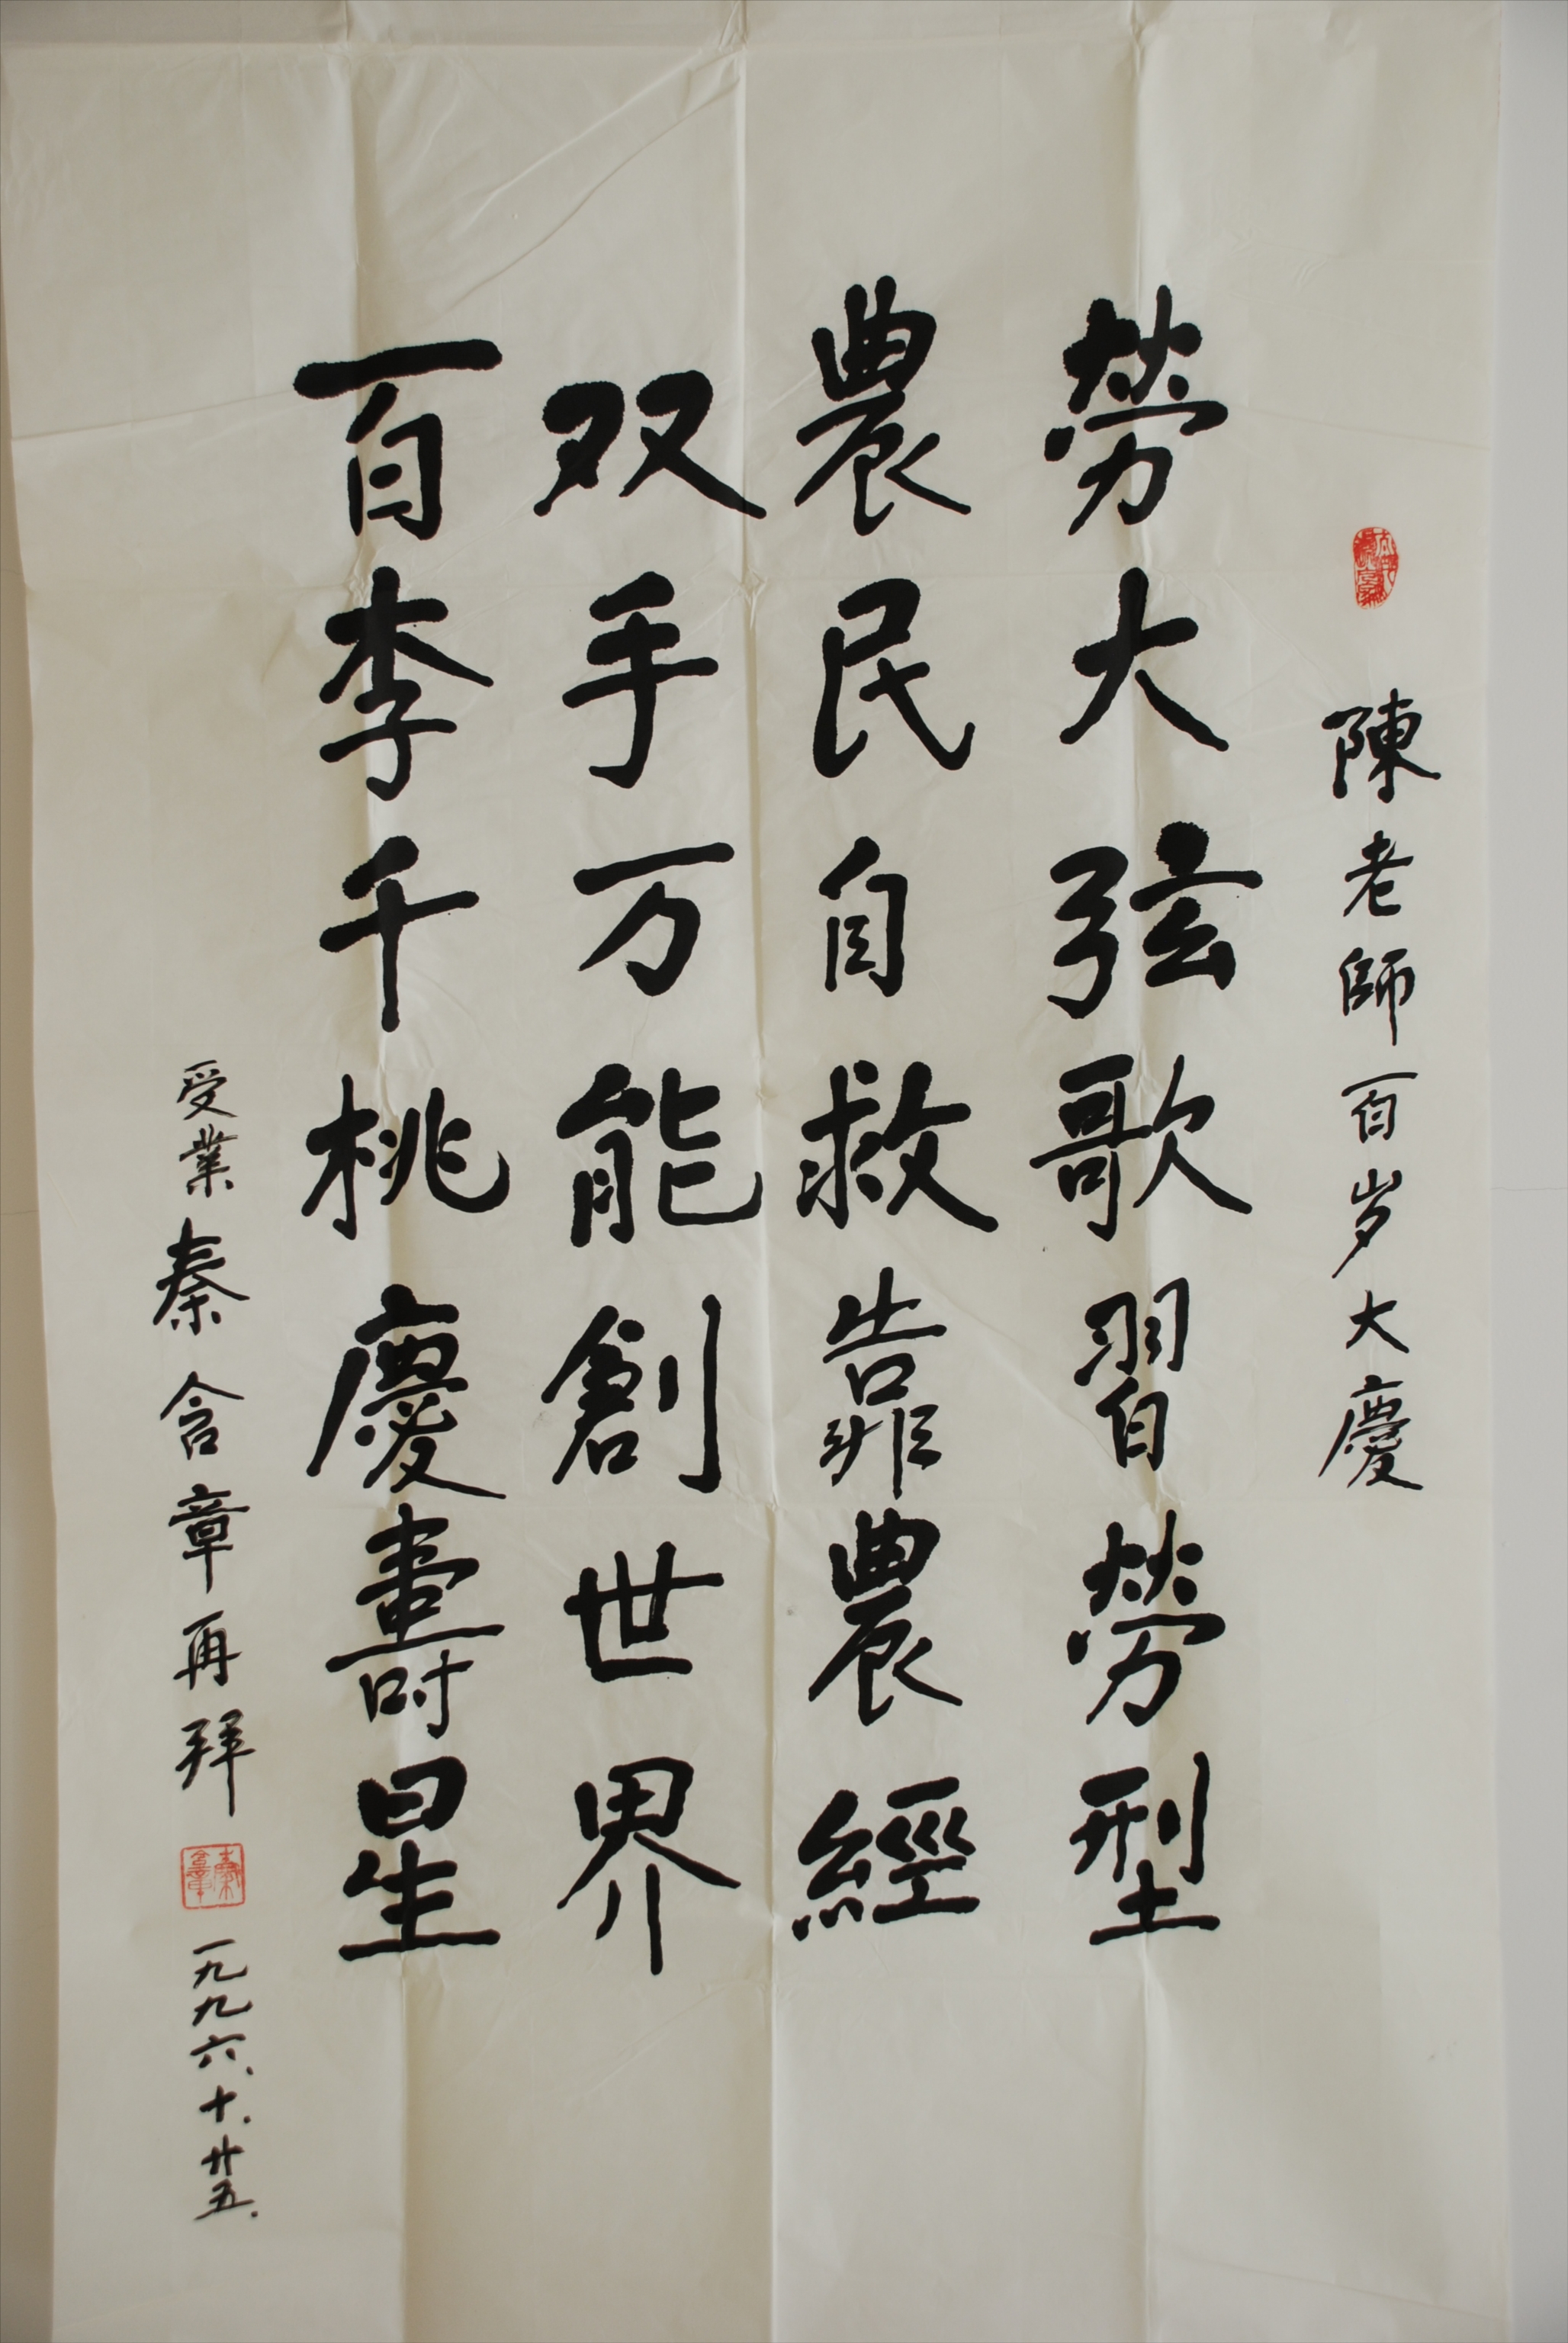 陳老師百岁大慶
勞大弦歌習勞型
農民自救靠農經
双手万能創世界
百李千桃慶壽星
受業秦含章再拜
秦含章
一九九六、十.廿五.